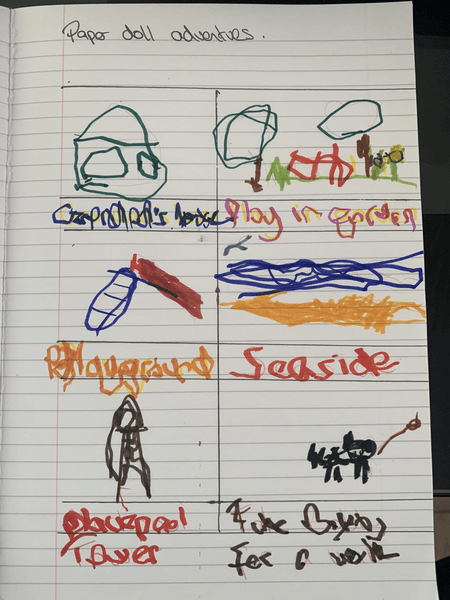 Paper doll adventres.
house
Play in garden
Playground
Seaside
Blackpool
Tower
Take
For a walk